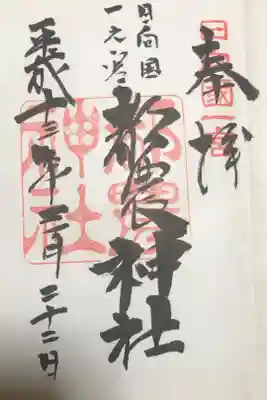 奉拝
日向国一宮
日向国
一之宮
都農神社
都農神社
平成十三年三月二十二日